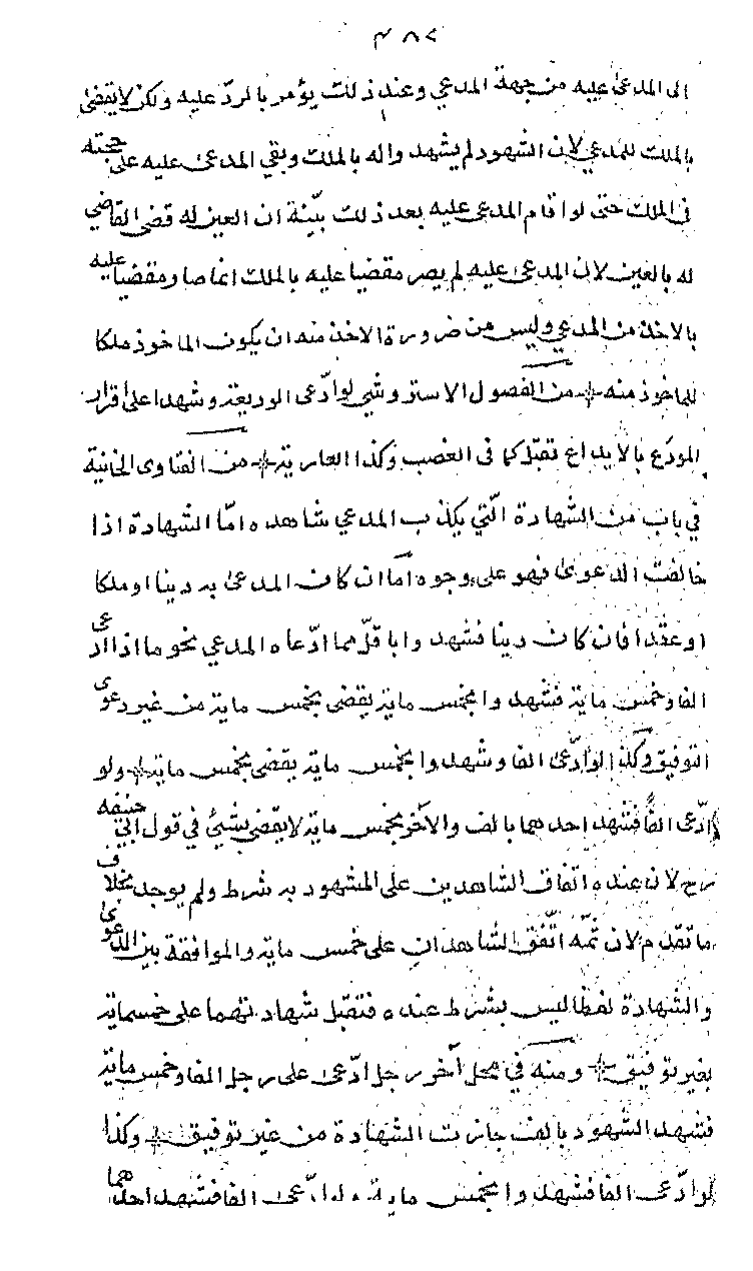 ٣٨٢
الى المدعى عليه من جهة المدعي وعند ذلك يؤمر بالرد عليه ولكن لا يقضى
بالملك للمدعي لان الشهود لم يشهدوا له بالملك وبقي المدعى عليه على حجته
في الملك حتى لو اقام المدعى عليه بعد ذلك بيّنة ان العين له قضى القاضي
له بالعين لان المدعى عليه لم يصر مقضيا عليه بالملك انما صار مقضيا عليه
بالاخذ من المدعي وليس من ضرورة الاخذ منه ان يكون الماخوذ ملكا
للماخوذ منه من الفصول الاستروشني لو ادّعى الوديعة وشهدا على اقرار
المودَع بالايداع تقبل كما في الغصب وكذا العارية من الفتاوى الخانية
في باب من الشهادة الّتي يكذب المدعي شاهده امّا الشهادة اذا
خالفت الدعوى فهو على وجوه امّا ان كان المدعى به دينا او ملكا
او عقدا فان كان دينا فشهدوا باقلّ مما ادّعاه المدعي نحو ما اذا ادعى
الفا وخمس ماية فشهدوا بخمس ماية يقضى بخمس ماية من غير دعوى
التوفيق وكذا لو ادّعى الفا وشهدوا بخمس ماية يقضى بخمس ماية ولو
ادّعى الفًا فشهد احدهما بالف والآخر بخمس ماية لا يقضى بشيئ في قول ابي حنيفه
رح لان عنده اتّفاق الشاهدين على المشهود به شرط ولم يوجد بخلاف
ما تقدم لان ثمّه اتّفق الشاهدان على خمس ماية والموافقة بين الدعوى
والشهادة لفظا ليس بشرط عنده فتقبل شهادتهما على خمسماية
بغير توفيق ومنه في محل آخر رجل ادّعى على رجل الفا وخمس ماية
فشهد الشهود بالف جازت الشهادة من غير توفيق وكذا
لو ادّعى الفا فشهدوا بخمس ماية ولو ادّعى الفا فشهد احدهما